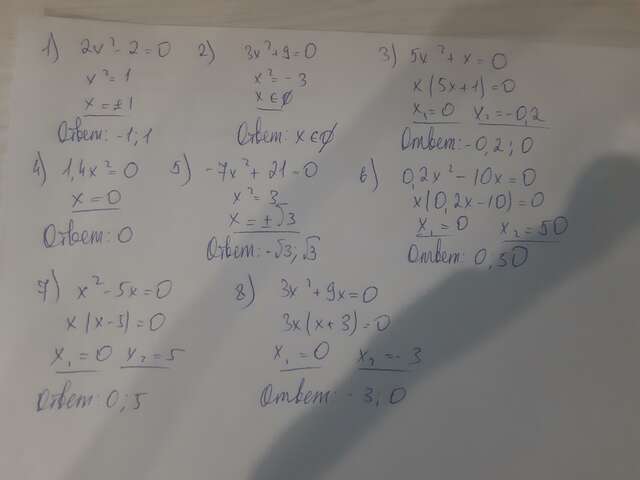 1) 2x² - 2 = 0
x² = 1
x = ±1
Ответ: -1; 1
2) 3x² + 9 = 0
x² = -3
x ∈ ∅
Ответ: x ∈ ∅
3) 5x² + x = 0
x(5x+1) = 0
x₁ = 0 x₂ = -0,2
Ответ: -0,2; 0
4) 1,4x² = 0
x = 0
Ответ: 0
5) -7x² + 21 = 0
x² = 3
x = ±√3
Ответ: -√3; √3
6) 0,2x² - 10x = 0
x(0,2x-10) = 0
x₁ = 0 x₂ = 50
Ответ: 0, 50
7) x² - 5x = 0
x(x-5) = 0
x₁ = 0 x₂ = 5
Ответ: 0; 5
8) 3x² + 9x = 0
3x(x+3) = 0
x₁ = 0 x₂ = -3
Ответ: -3; 0